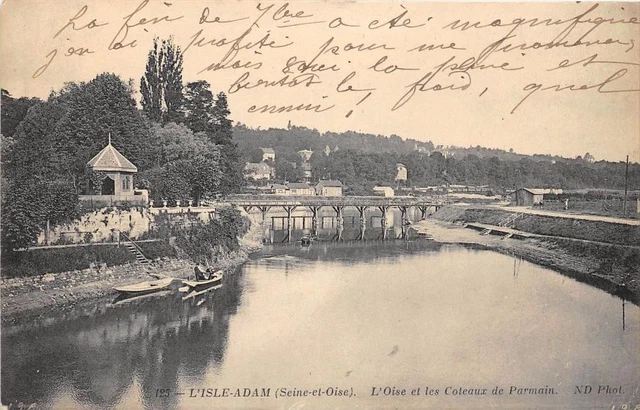 La fin de 7bre a été magnifique
j'en ai profité pour me promener,
mais voici la pluie et
bientôt le froid, quel
ennui !
123 — L'ISLE-ADAM (Seine-et-Oise). L'Oise et les Coteaux de Parmain. ND Phot.